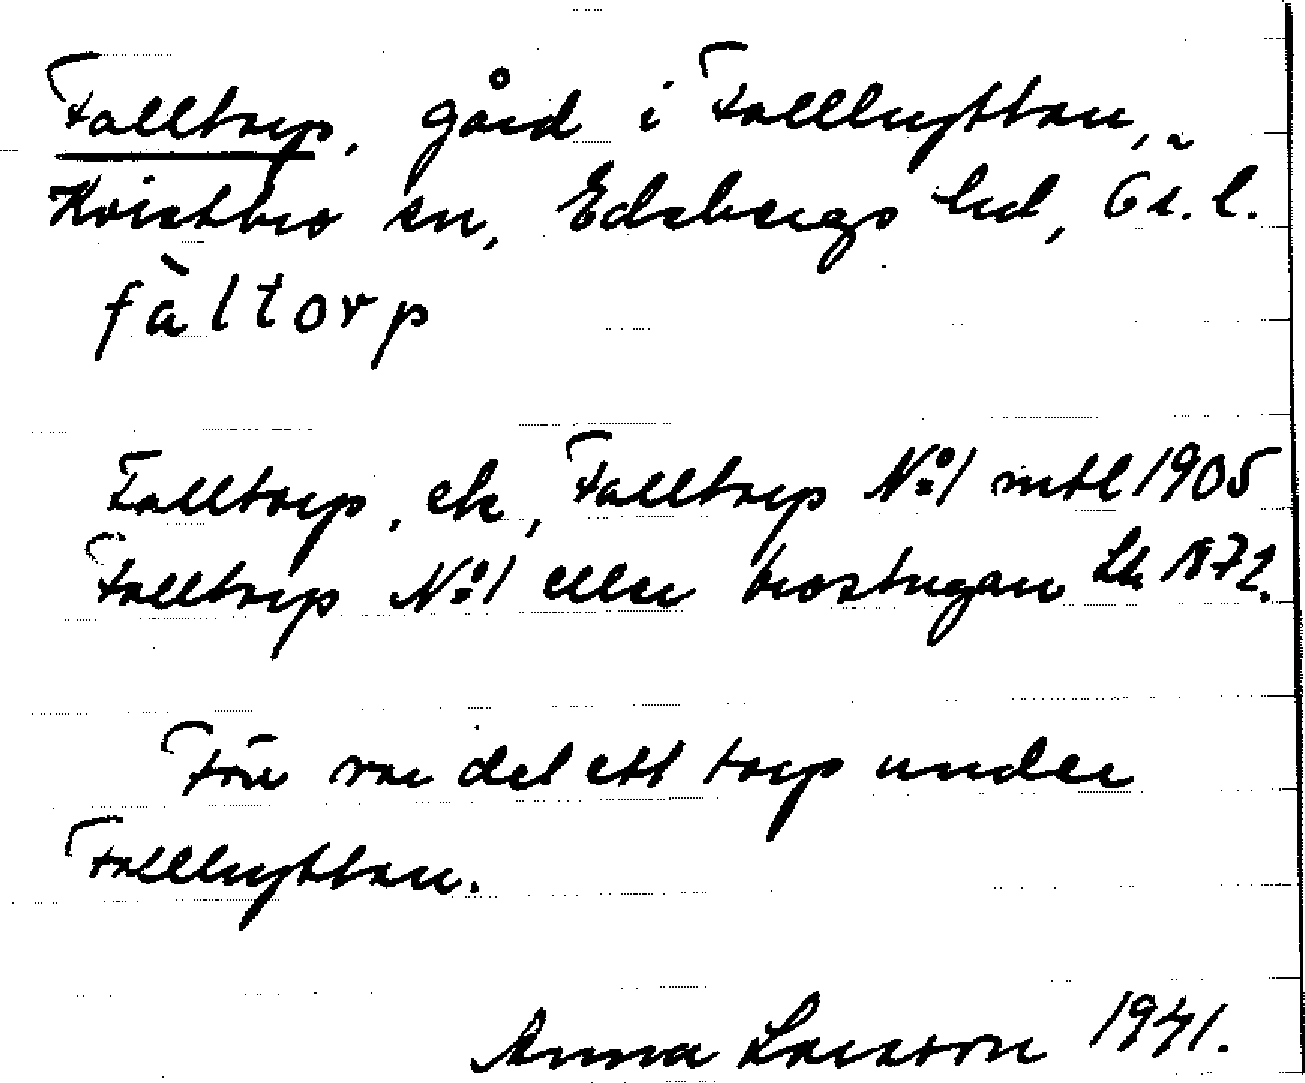 Falltorp, gård i Fallhyttan,
Kvistbro sn, Edsbergs hd, Ör. l.
fàltorp
Falltorp, ek, Falltorp No 1 mtl 1905
Falltorp No 1 eller brostugan Lk 1872.
Förr var det ett torp under
Fallhyttan.
Anna Larsson 1941.